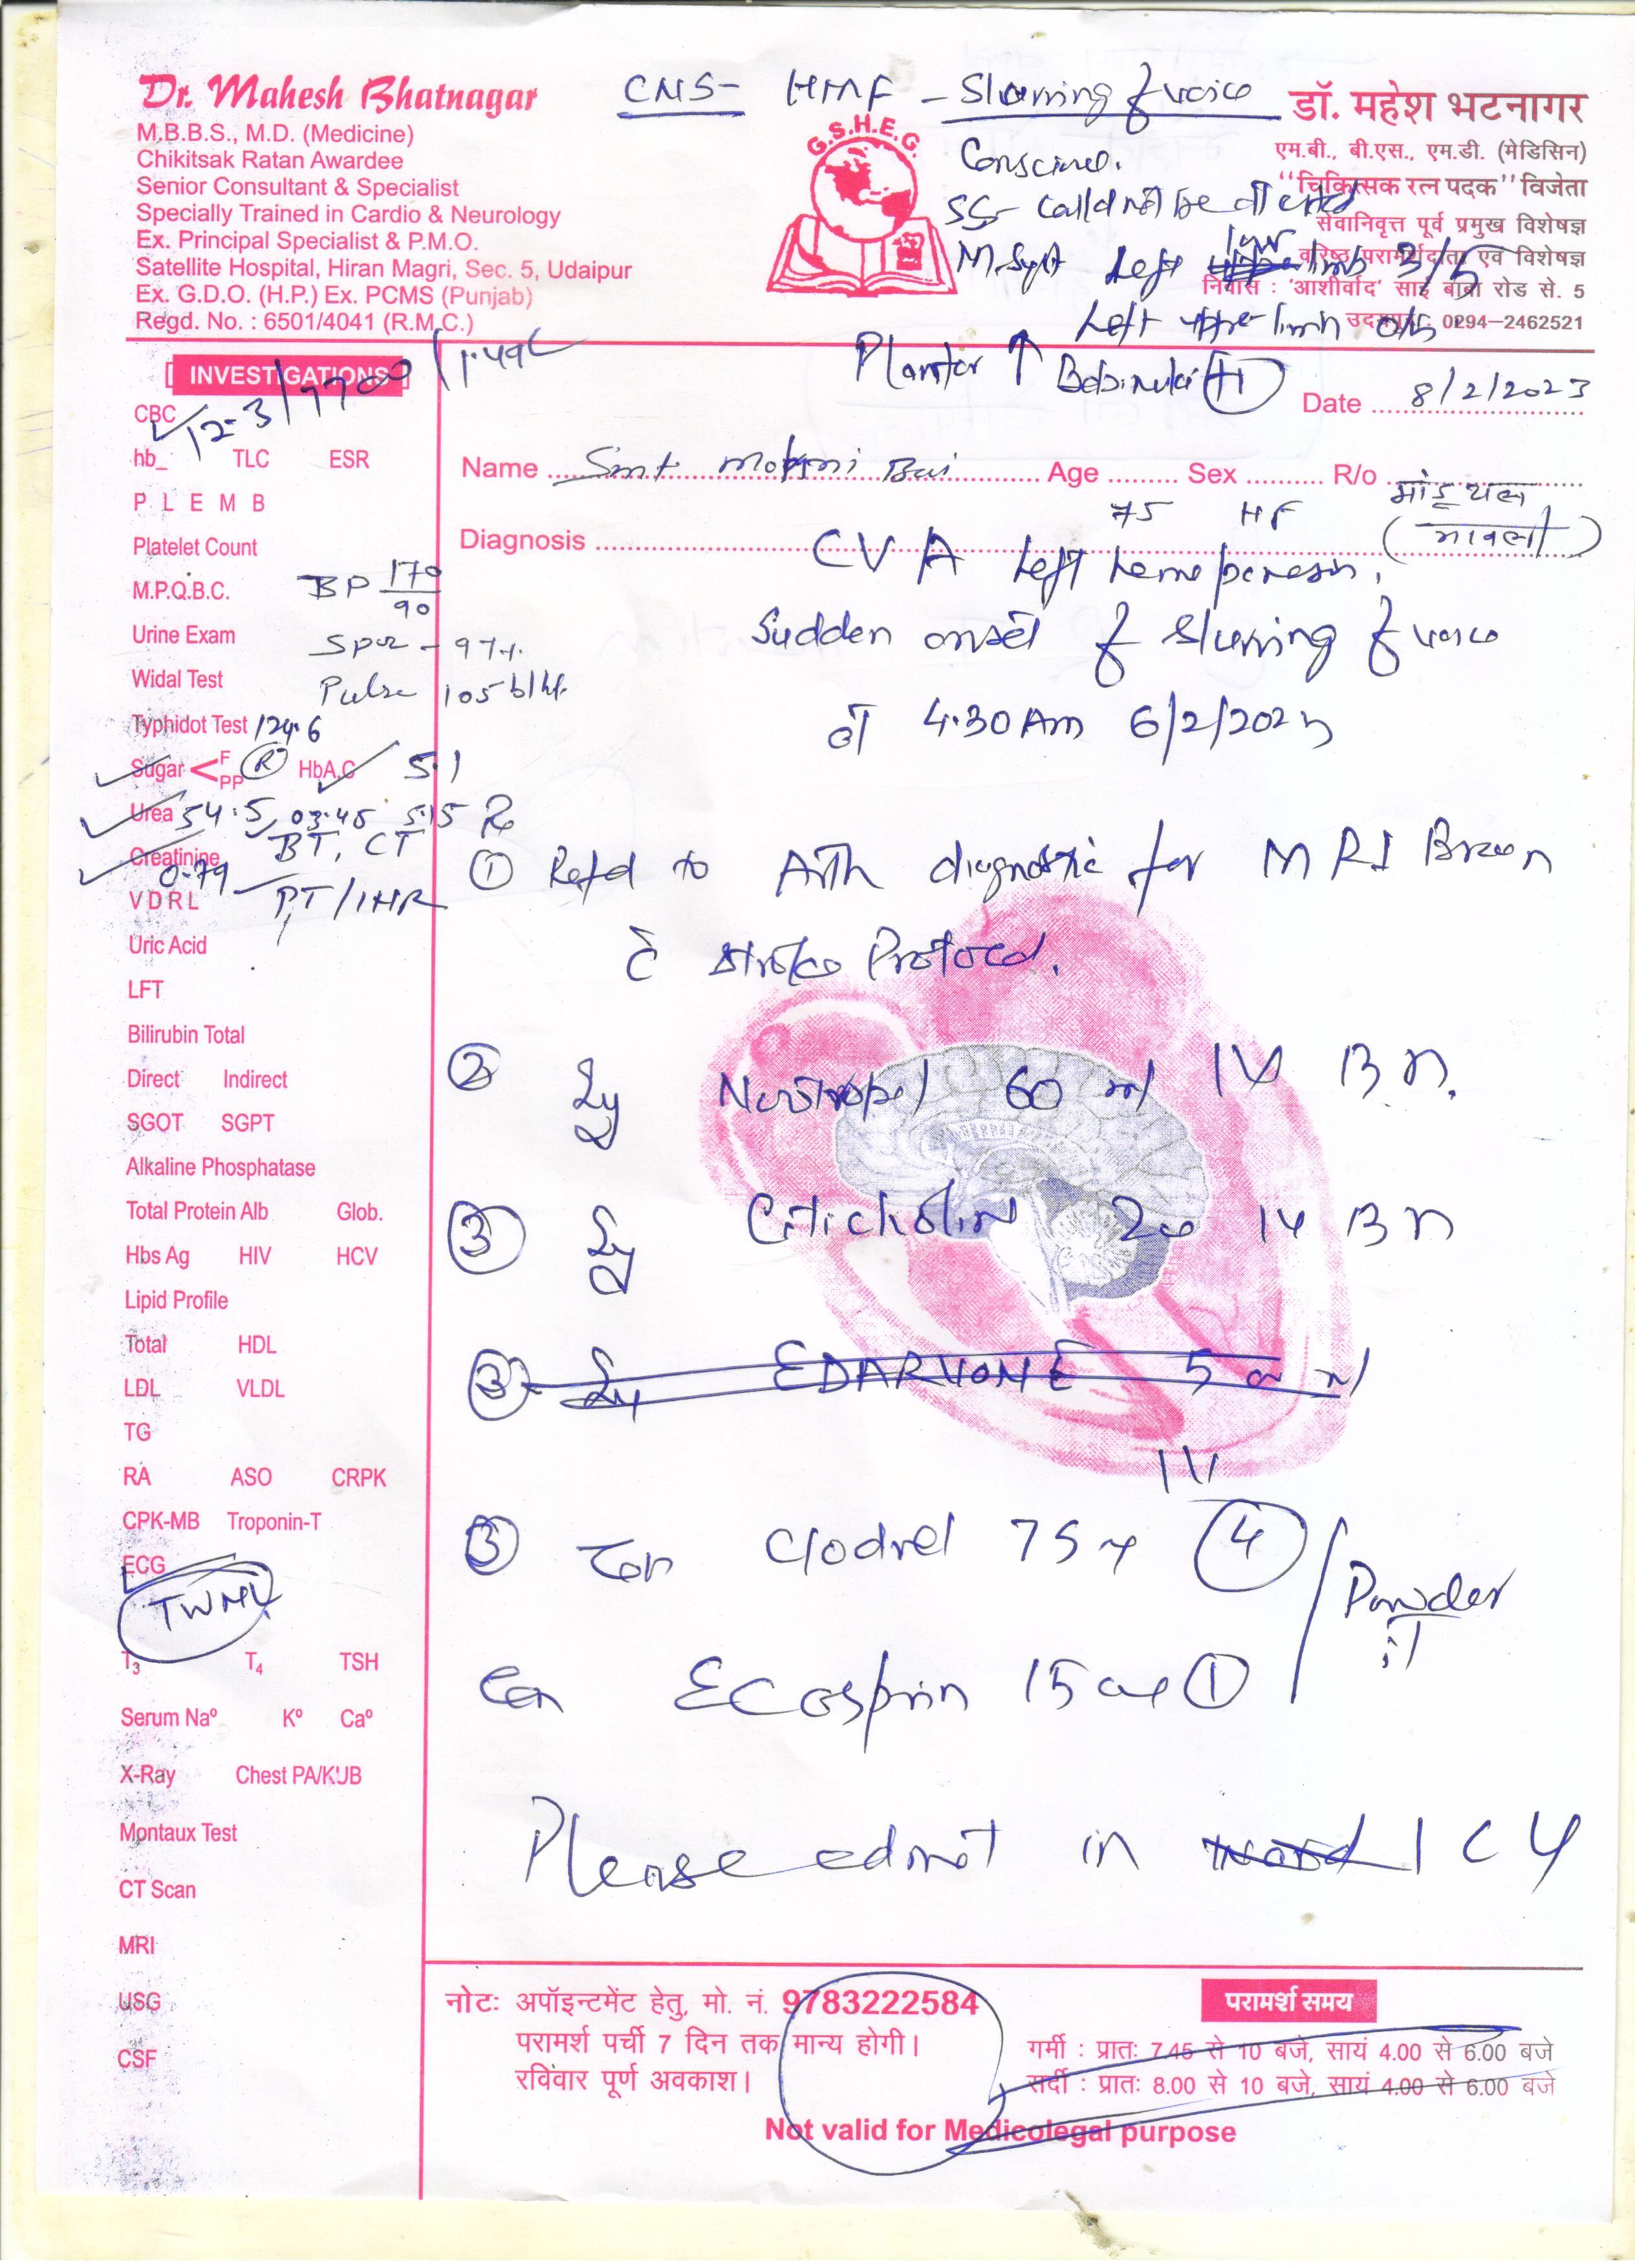 Dr. Mahesh Bhatnagar
M.B.B.S., M.D. (Medicine)
Chikitsak Ratan Awardee
Senior Consultant & Specialist
Specially Trained in Cardio & Neurology
Ex. Principal Specialist & P.M.O.
Satellite Hospital, Hiran Magri, Sec. 5, Udaipur
Ex. G.D.O. (H.P.) Ex. PCMS (Punjab)
Regd. No. : 6501/4041 (R.M.C.)
G.S.H.E.G.
डॉ. महेश भटनागर
एम.बी., बी.एस., एम.डी. (मेडिसिन)
"चिकित्सक रत्न पदक" विजेता
सेवानिवृत्त पूर्व प्रमुख विशेषज्ञ
वरिष्ठ परामर्शदाता एवं विशेषज्ञ
निवास : 'आशीर्वाद' साई बाबा रोड से. 5
उदयपुर : 0294-2462521
CNS- HMF - Slurring of voice
SS- could not be
Left limb 3/5
Left upper limb 0/5
Plantar ↑
INVESTIGATIONS
12.3/7700/1.49L
CBC
hb_ TLC ESR
P L E M B
Platelet Count
M.P.Q.B.C.
BP 170/90
Urine Exam
97%
Widal Test
Pulse 105
Typhidot Test 124.6
Sugar < F PP (R) HbA,C 5.1
Urea 54.5 03.45 5.15
BT, CT
Creatinine
0.79
PT/INR
VDRL
Uric Acid
LFT
Bilirubin Total
Direct Indirect
SGOT SGPT
Alkaline Phosphatase
Total Protein Alb Glob.
Hbs Ag HIV HCV
Lipid Profile
Total HDL
LDL VLDL
TG
RA ASO CRPK
CPK-MB Troponin-T
ECG
T3 T4 TSH
Serum Naº Kº Caº
X-Ray Chest PA/KUB
Montaux Test
CT Scan
MRI
USG
CSF
Date 8/2/2023
Name Smt Bai Age 75 Sex HF R/o
Diagnosis CVA Left
Sudden onset of slurring of voice
at 4.30 Am 6/2/2023
① to diagnostic for MRI
c̄ stroke Protocol.
② 60 ml IV
③
③ EDARVONE
IV
③ 75 ④
Ecosprin ①
Powder
Please admit in ICU
नोटः अपॉइन्टमेंट हेतु, मो. नं. 9783222584
परामर्श पर्ची 7 दिन तक मान्य होगी।
रविवार पूर्ण अवकाश।
परामर्श समय
गर्मी : प्रातः 7.45 से 10 बजे, सायं 4.00 से 6.00 बजे
सर्दी : प्रातः 8.00 से 10 बजे, सायं 4.00 से 6.00 बजे
Not valid for Medicolegal purpose